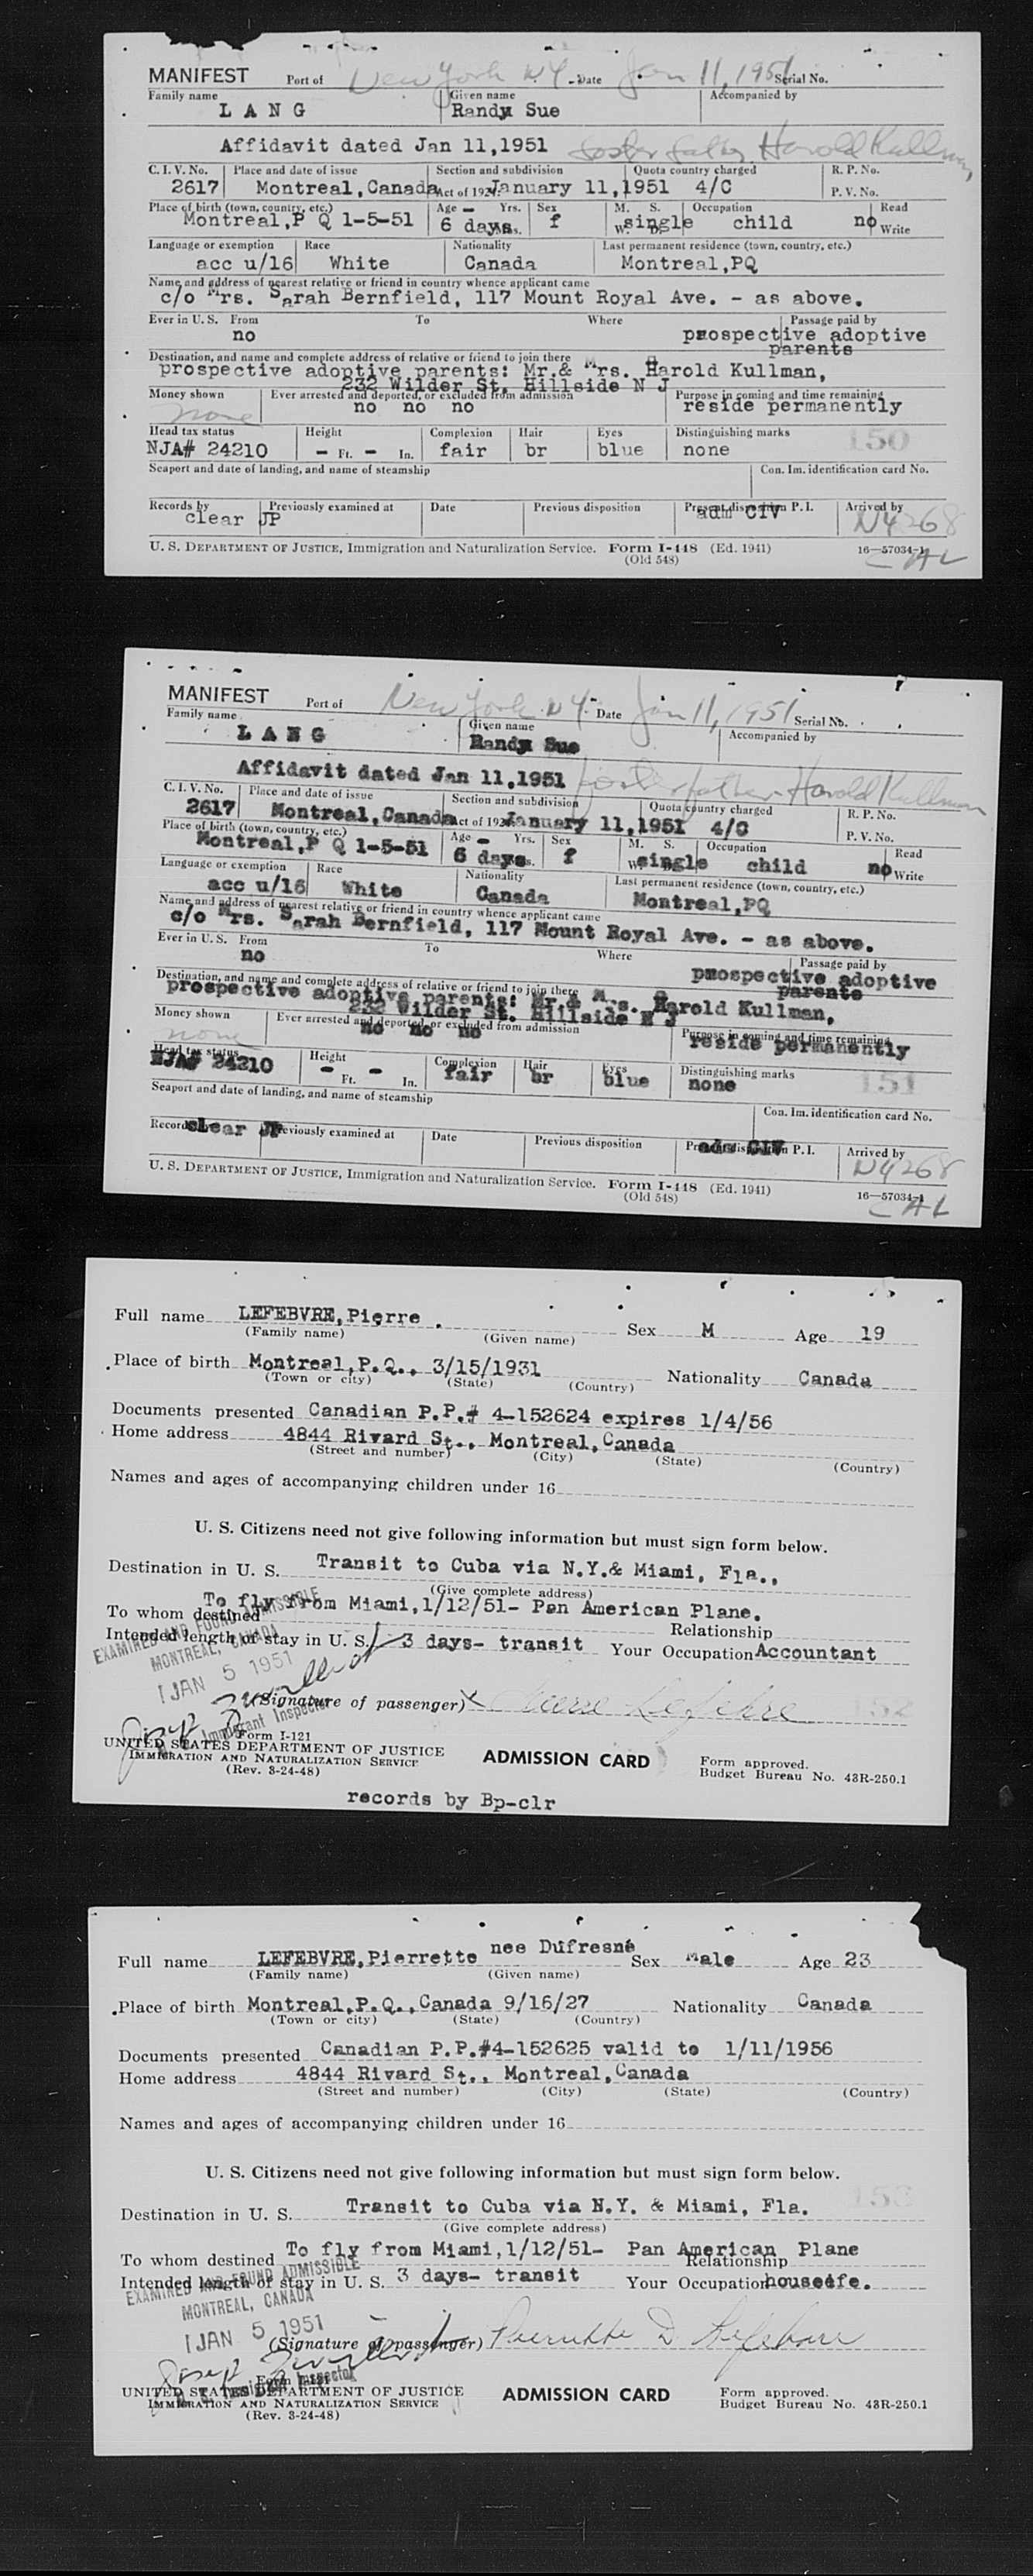 MANIFEST Port of New York NY Date Jan 11, 1951 Serial No.
Family name Given name Accompanied by
LANG Randy Sue
Affidavit dated Jan 11,1951 foster father Harold Kullman
C. I. V. No. Place and date of issue Section and subdivision Quota country charged R. P. No.
2617 Montreal, Canada Act of 192 January 11,1951 4/C P. V. No.
Place of birth (town, country, etc.) Age Yrs. Sex M. S. Occupation Read
Montreal,P Q 1-5-51 6 days f single child no Write
Language or exemption Race Nationality Last permanent residence (town, country, etc.)
acc u/16 White Canada Montreal,PQ
Name and address of nearest relative or friend in country whence applicant came
c/o Mrs. Sarah Bernfield, 117 Mount Royal Ave. - as above.
Ever in U. S. From To Where Passage paid by
no prospective adoptive
parents
Destination, and name and complete address of relative or friend to join there
prospective adoptive parents: Mr.& Mrs. Harold Kullman,
232 Wilder St. Hillside N J
Money shown Ever arrested and deported, or excluded from admission Purpose in coming and time remaining
none no no no reside permanently
Head tax status Height Complexion Hair Eyes Distinguishing marks 150
NJA# 24210 - Ft. - In. fair br blue none
Seaport and date of landing, and name of steamship Con. Im. identification card No.
Records by Previously examined at Date Previous disposition Present disposition P. I. Arrived by
clear JP adm CIV N4268
U. S. DEPARTMENT OF JUSTICE, Immigration and Naturalization Service. Form I-448 (Ed. 1941) 16—57034-1
(Old 548) CAL
MANIFEST Port of New York NY Date Jan 11, 1951 Serial No.
Family name Given name Accompanied by
LANG Randy Sue
Affidavit dated Jan 11,1951 foster father Harold Kullman
C. I. V. No. Place and date of issue Section and subdivision Quota country charged R. P. No.
2617 Montreal, Canada Act of 192 January 11,1951 4/C P. V. No.
Place of birth (town, country, etc.) Age Yrs. Sex M. S. Occupation Read
Montreal,P Q 1-5-51 6 days f single child no Write
Language or exemption Race Nationality Last permanent residence (town, country, etc.)
acc u/16 White Canada Montreal,PQ
Name and address of nearest relative or friend in country whence applicant came
c/o Mrs. Sarah Bernfield, 117 Mount Royal Ave. - as above.
Ever in U. S. From To Where Passage paid by
no prospective adoptive
parents
Destination, and name and complete address of relative or friend to join there
prospective adoptive parents: Mr.& Mrs. Harold Kullman,
232 Wilder St. Hillside N J
Money shown Ever arrested and deported, or excluded from admission Purpose in coming and time remaining
none no no no reside permanently
Head tax status Height Complexion Hair Eyes Distinguishing marks 151
NJA# 24210 - Ft. - In. fair br blue none
Seaport and date of landing, and name of steamship Con. Im. identification card No.
Records by Previously examined at Date Previous disposition Present disposition P. I. Arrived by
clear JP adm CIV N4268
U. S. DEPARTMENT OF JUSTICE, Immigration and Naturalization Service. Form I-448 (Ed. 1941) 16—57034-1
(Old 548) CAL
Full name LEFEBVRE,Pierre . Sex M Age 19
(Family name) (Given name)
Place of birth Montreal,P.Q., 3/15/1931 Nationality Canada
(Town or city) (State) (Country)
Documents presented Canadian P.P.# 4-152624 expires 1/4/56
Home address 4844 Rivard St., Montreal,Canada
(Street and number) (City) (State) (Country)
Names and ages of accompanying children under 16
U. S. Citizens need not give following information but must sign form below.
Destination in U. S. Transit to Cuba via N.Y.& Miami, Fla.,
(Give complete address)
To whom destined To fly from Miami,1/12/51- Pan American Plane.
Relationship
Intended length of stay in U. S. 3 days- transit Your Occupation Accountant
EXAMINED AND FOUND ADMISSIBLE
MONTREAL, CANADA
JAN 5 1951
(Signature of passenger) X Pierre Lefebvre 152
Immigrant Inspector
Form I-121
UNITED STATES DEPARTMENT OF JUSTICE
IMMIGRATION AND NATURALIZATION SERVICE
(Rev. 3-24-48)
ADMISSION CARD
Form approved.
Budget Bureau No. 43R-250.1
records by Bp-clr
Full name LEFEBVRE,Pierrette nee Dufresne Sex Male Age 23
(Family name) (Given name)
Place of birth Montreal,P.Q.,Canada 9/16/27 Nationality Canada
(Town or city) (State) (Country)
Documents presented Canadian P.P.#4-152625 valid to 1/11/1956
Home address 4844 Rivard St., Montreal,Canada
(Street and number) (City) (State) (Country)
Names and ages of accompanying children under 16
U. S. Citizens need not give following information but must sign form below.
153
Destination in U. S. Transit to Cuba via N.Y. & Miami, Fla.
(Give complete address)
To whom destined To fly from Miami,1/12/51- Pan American Plane
Relationship
Intended length of stay in U. S. 3 days- transit Your Occupation houseife.
EXAMINED AND FOUND ADMISSIBLE
MONTREAL, CANADA
JAN 5 1951
(Signature of passenger) Pierrette D Lefebvre
Immigrant Inspector
UNITED STATES DEPARTMENT OF JUSTICE
IMMIGRATION AND NATURALIZATION SERVICE
(Rev. 3-24-48)
ADMISSION CARD
Form approved.
Budget Bureau No. 43R-250.1